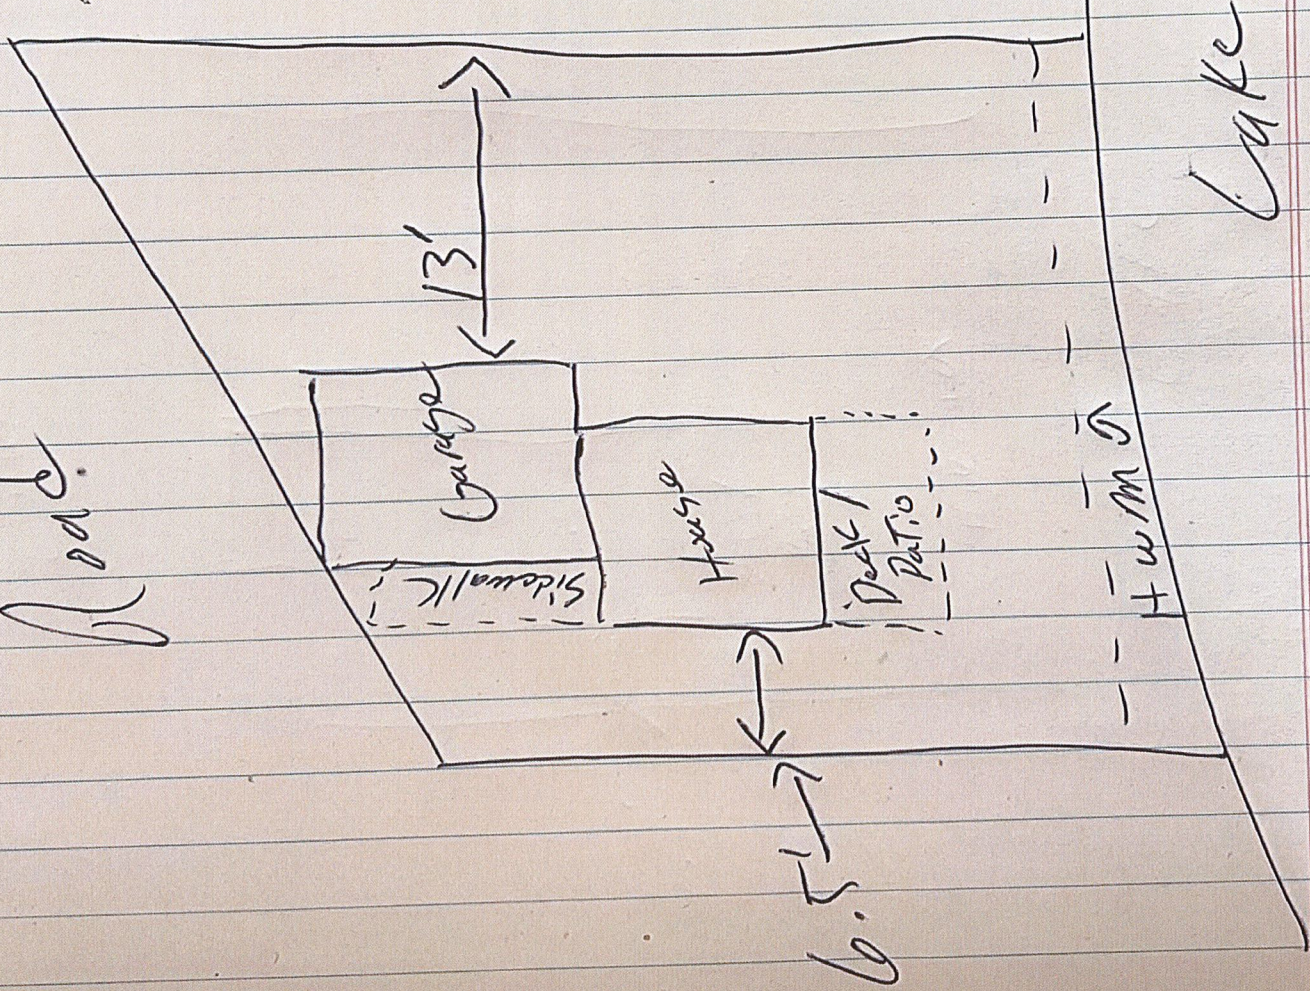 Road.
13'
Garage
Sidewalk
House
Deck/
Patio
6.5'
HWM
Lake